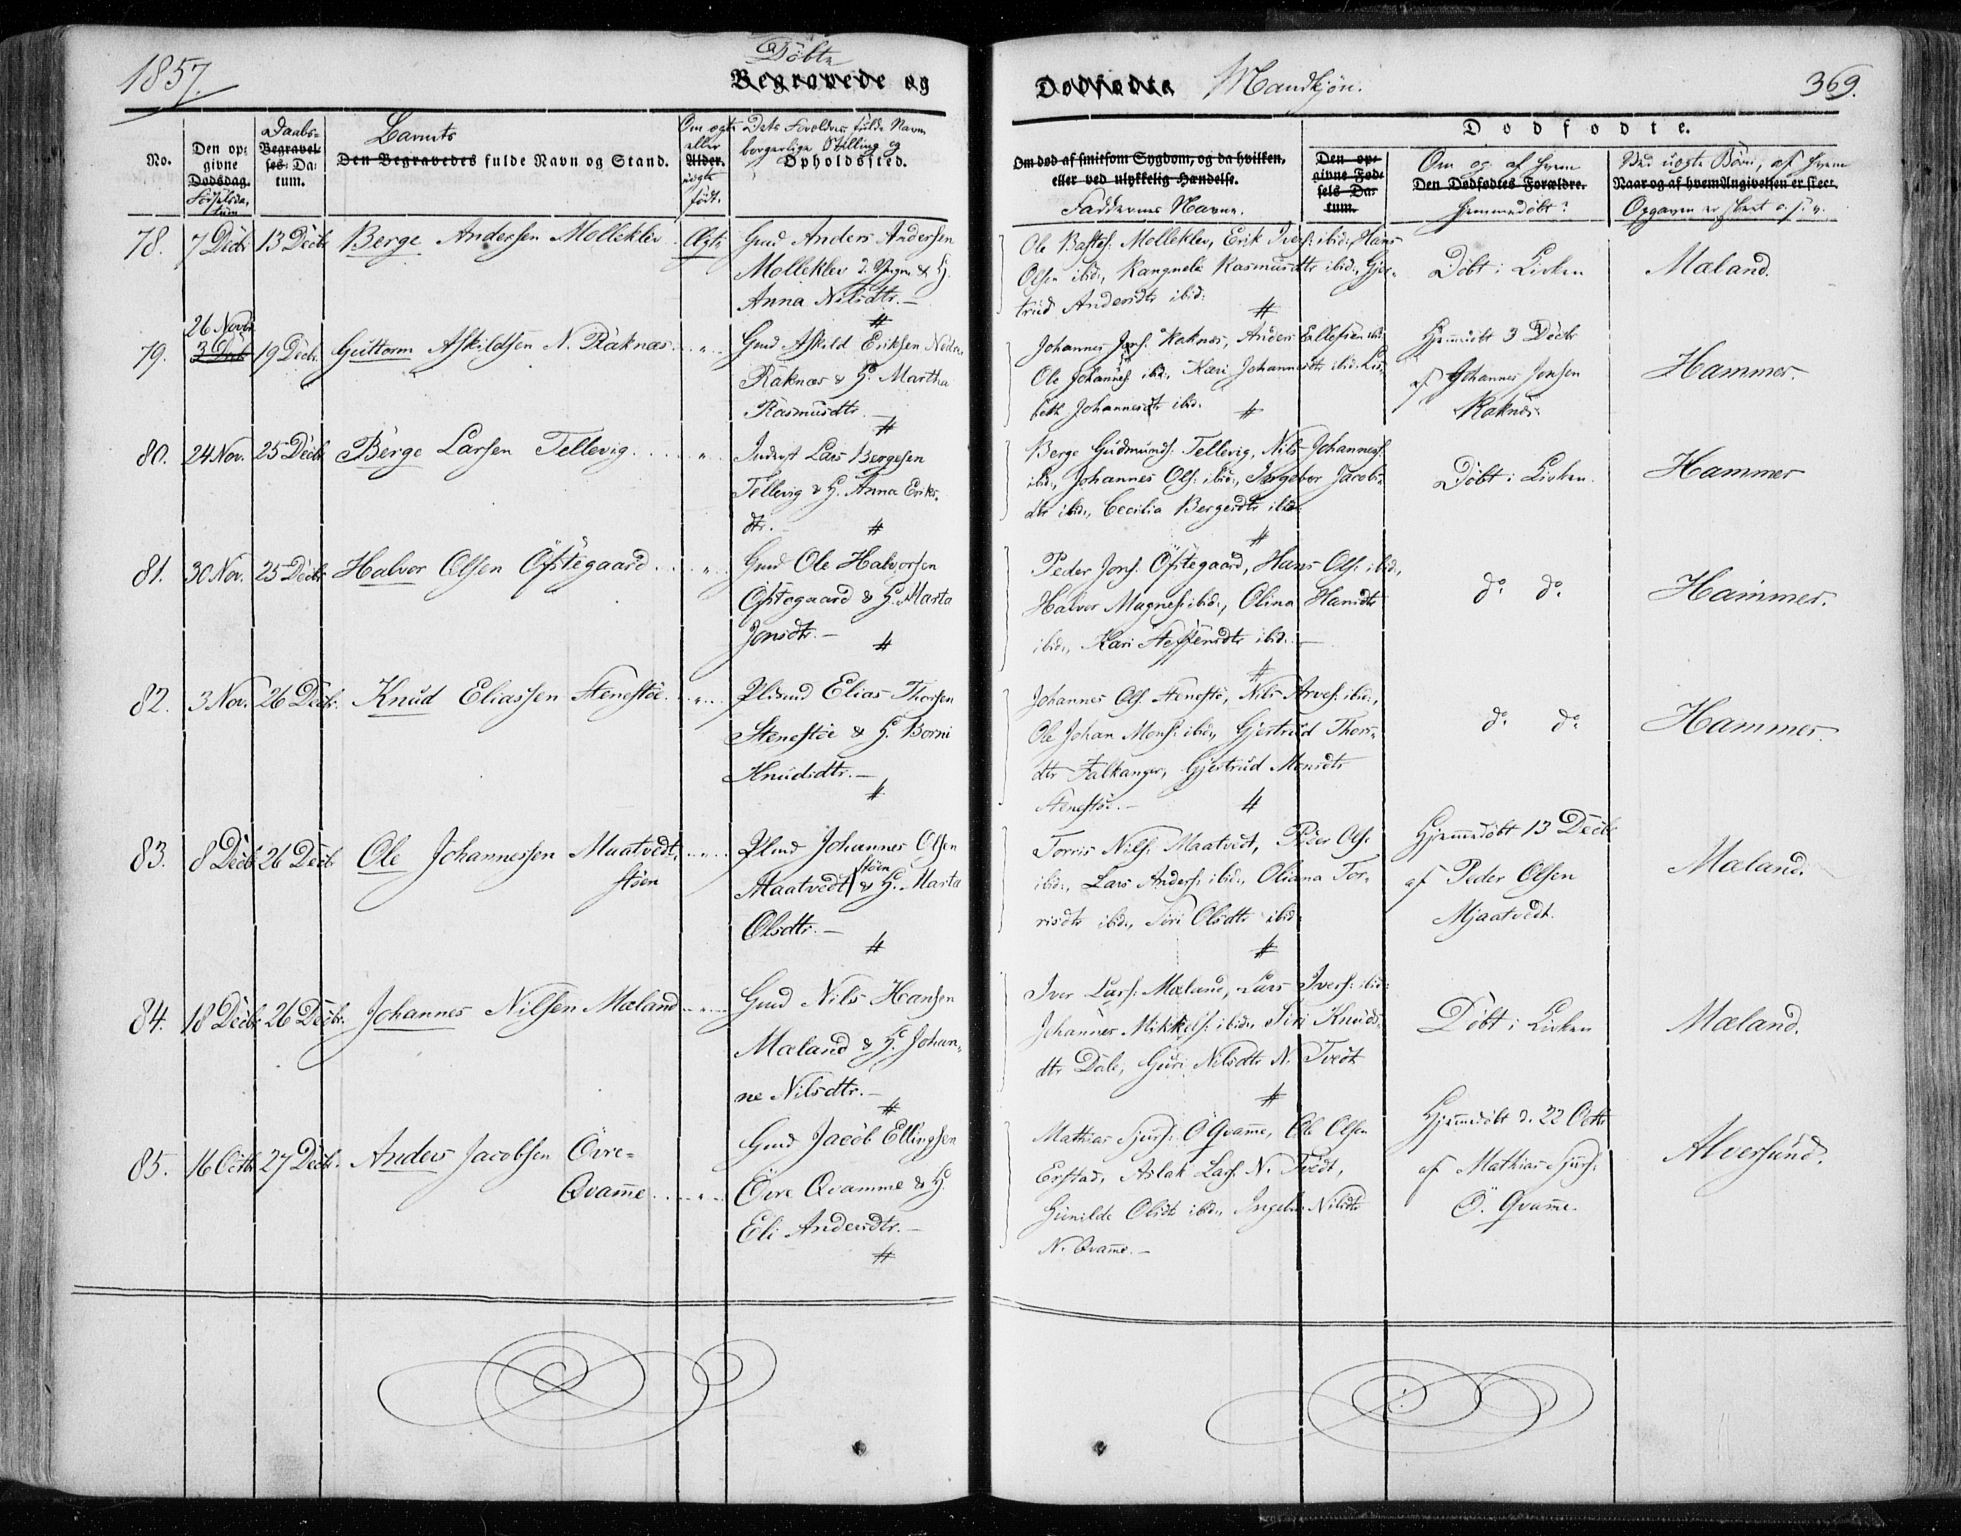 1857.
Döbte
Begravede og
Dødfødte Mandkjön.
369.
No.
Den op-
givne
Dødsdag.
Födselsda-
tum
Daabs-
Begravel-
ses- Da-
tum.
Barnets
Den Begravedes fulde Navn og Stand.
Om ægte
eller
Alder.
uægte
födt.
Dets Forældres fulde Navn
borgerlige Stilling og
Opholdssted.
Om død af smitsom Sygdom, og da hvilken,
eller ved ulykkelig Hændelse.
Faddernes Navne.
Dødfødte.
Den op-
givne Fød-
sels Da-
tum.
Om og af hvem
Den Dødfødtes Forældre.
hjemmedöbt?
Ved uægte Börn, af hvem
Naar og af hvem Angivelsen er skeet.
Opgaven er skeet o. s. v.
78. 7 Decbr 13 Decbr Berge Andersen Molleklev. Ægte Gmd Anders Andersen
Molleklev & H.
Anna Nilsdtr. —
Ole Bastes. Molleklev, Erik Ivers. ibid., Hans
Olsen ibid., Rangnela Rasmusdtr ibid., Gjer-
trud Andersdtr ibid.
Döbt i Kirken
Mæland.
26 Novbr
79. 3 Decb 19 Decbr. Guttorm Askildsen N. Raknæs. " Gmd Askild Eriksen Nedre
Raknæs & H. Martha
Rasmusdtr. —
Johannes Jons. Raknæs, Anders Ellefsen ibid.
Ole Johannes. ibid., Kari Johannesdtr ibid. Lis-
beth Johannesdtr ibid.
Hjemmedöbt 3 Decbr
af Johannes Jonsen
Raknæs.
Hammer.
80. 24 Nov. 25 Decbr Berge Larsen Tellevig. " Inderst Lars Bergesen
Tellevig & H. Anna Eriks-
dtr.
Berge Gudmunds. Tellevig, Nils Johannes.
ibid., Johannes Ols. ibid., Ingebor Jacobs-
dtr ibid., Cecilia Bergesdtr ibid.
Döbt i Kirken.
Hammer
81. 30 Nov. 25 Decbr Halvor Olsen Öfstegaard. " Gmd Ole Halvorsen
Öfstegaard & H. Marta
Jonsdtr. —
Peder Jons. Öfstegaard, Hans Ols. ibid.,
Halvor Magnes. ibid., Olina Hansdtr
ibid., Kari Steffensdtr ibid. —
do. do.
Hammer.
82. 3 Nov. 26 Decbr. Knud Eliassen Stenestöe. " Plsmd Elias Thorsen
Stenestöe & H. Borni
Knudsdtr. —
Johannes Ols. Stenestö, Nils Arves. ibid.,
Ole Johan Mons. ibid., Gjertrud Thors-
dtr Falkanger, Gjertrud Monsdtr
Stenestö. —
do. do.
Hammer.
83. 8 Decbr 26 Decbr Ole Johannessen Maatvedt- " Plsmd Johannes Olsen
stöen
stöen
Maatvedt & H. Marta
Olsdtr. —
Torris Nils. Maatvedt, Peder Ols.
ibid., Lars Anders. ibid., Oliana Tor-
risdtr ibid., Siri Olsdtr ibid.
Hjemmedöbt 13 Decbr
af Peder Olsen
Mjaatvedt.
Mæland.
84. 18 Decbr 26 Decbr. Johannes Nilsen Mæland " Gmd Nils Hansen
Mæland & H. Johan-
ne Nilsdtr. —
Iver Lars. Mæland, Lars Ivers. ibid.
Johannes Mikkels. ibid., Siri Knuds-
dtr Dale, Guri Nilsdtr N. Tvedt
Döbt i Kirken
Mæland.
85. 16 Octbr 27 Decbr. Anders Jacobsen Övre-
Qvamme. " Gmd Jacob Ellingsen
Övre Qvamme & H.
Eli Andersdtr. —
Mathias Sjurs. Ö Qvamme, Ole Olsen
Erstad, Aslak Lars. N. Tvedt,
Gunilde Olsdtr ibid., Nilsdtr
N. Qvamme. —
Hjemmedöbt d. 22 Octbr
af Mathias Sjurs.
Ö. Qvamme.
Alversund.